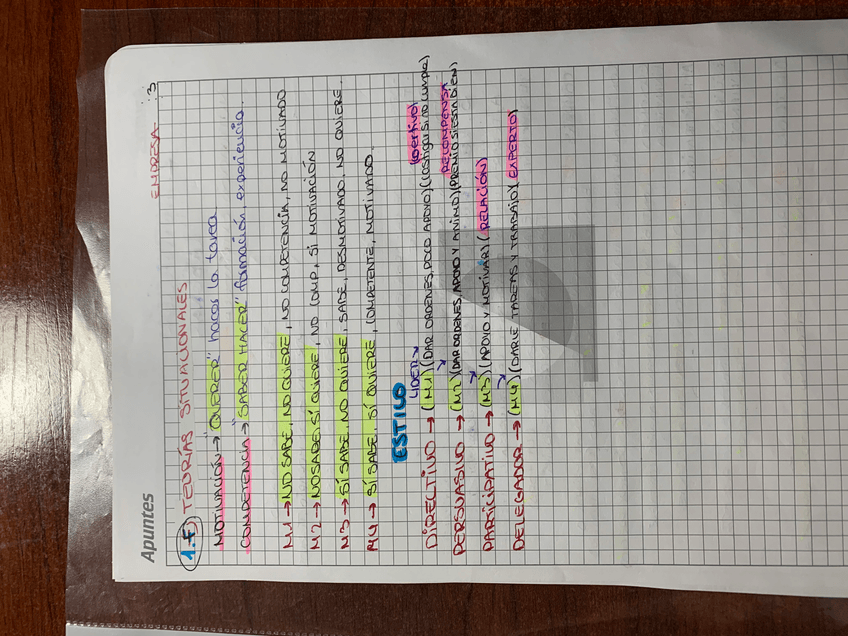 Apuntes
EMPRESA
:3
1.F) TEORÍAS SITUACIONALES
MOTIVACIÓN → "QUERER" hacer la tarea.
COMPETENCIA → "SABER HACER" formación experiencia.
M1 → NO SABE, NO QUIERE, NO COMPETENCIA, NO MOTIVADO
M2 → NO SABE, SÍ QUIERE, NO COMP, SÍ MOTIVACIÓN
M3 → SÍ SABE, NO QUIERE, SABE, DESMOTIVADO, NO QUIERE.
M4 → SÍ SABE, SÍ QUIERE, COMPETENTE, MOTIVADO.
ESTILO
LIDER
(coertivo)
DIRECTIVO → (M1) (DAR ORDENES, POCO APOYO) (castigui si no cumple)
RECOMPENSA
PERSUASIVO → (M2) (DAR ORDENES, APOYO Y ANIMO) (PREMIO SI ESTÁ BIEN)
PARTICIPATIVO → (M3) (APOYO Y MOTIVAR) (RELACIÓN)
DELEGADOR → (M4) (DARLE TAREAS Y TRABAJO) (EXPERTO)